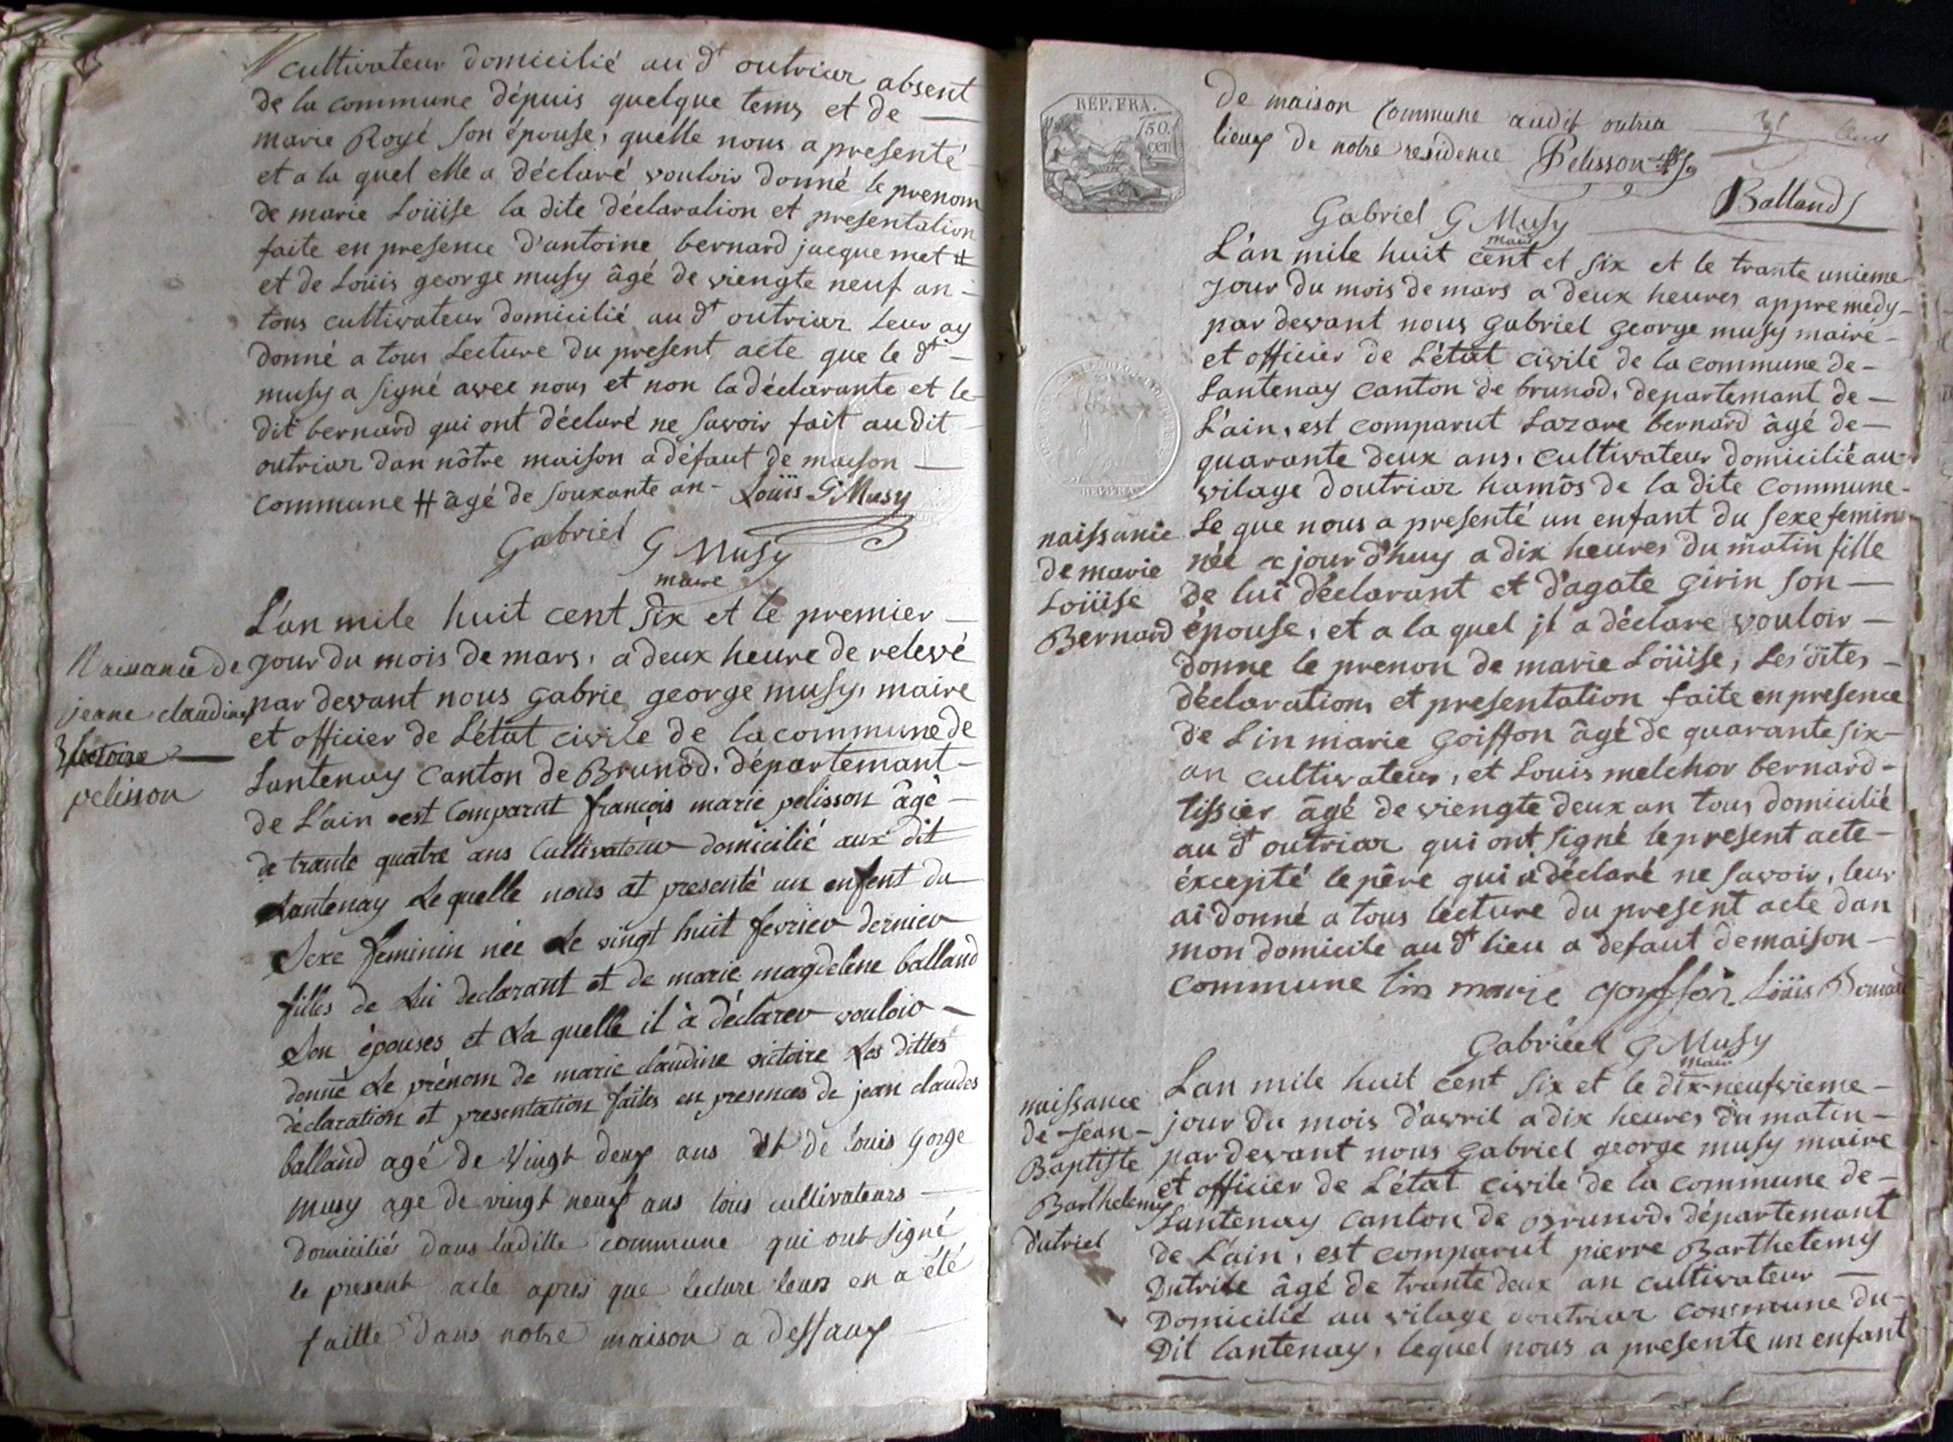 cultivateur domicilié au dt outriar absent
de la commune dépuis quelque tems et de
marie Royé son épouse, quelle nous a presenté
et a la quel elle a déclaré vouloir donné le prenom
de marie Loüise la dite déclaration et presentation
faite en presence d'antoine bernard jacquemet #
et de Loüis george musy âgé de viengte neuf an
tous cultivateur domicilié au dt outriar leur ay
donné a tous Lecture du present acte que le dt
musy a signé avec nous et non la déclarante et le
dit bernard qui ont déclaré ne savoir fait au dit
outriar dan nôtre maison a défaut de maison
commune # âgé de souxante an - Loüis G Musy
Gabriel G Musy
maire
Naissance de
jeane claudine
victoire
pelisson
L'an mile huit cent six et le premier
jour du mois de mars, a deux heure de relevé
par devant nous gabrie george musy, maire
et officier de L'état civile de la commune de
Lantenay canton de Brunod, département
de L'ain est Comparut françois marie pelisson âgé
de trante quatre ans Cultivateur domicilié aux dit
Lantenay Le quelle nous at presenté un enfent du
Sexe feminin née Le vingt huit fevrier dernier
filles de Lui declarant et de marie magdelene balland
Son épouses et La quelle il à déclarer vouloir
donné Le prénom de marie claudine victoire Les dittes
déclaration et presentation faites en presences de jean claudes
balland agé de Vingt deux ans et de louis gorge
musy age de vingt neuf ans tous cultivateurs
domiciliés dans ladille commune qui ont signé
le present acte apres que lecture leurs en a été
faitte dans notre maison a deffaux
REP. FRA.
50.
cen
de maison Commune audit outria
lieux de notre residence Pelisson
Balland
Gabriel G Musy
maire
L'an mile huit cent et six et le trante unieme
jour du mois de mars a deux heures appre medy
par devant nous gabriel george musy mairé
et officier de L'état civile de la commune de
Lantenay canton de brunod, departemant de
L'ain, est comparut Lazare bernard âgé de
quarante deux ans, cultivateur domicilié au
vilage doutriar hamôs de la dite commune
naissance
de marie
Loüise
Bernard
Le que nous a presenté un enfant du sexe feminin
néé ce jour d'huy a dix heures du matin fille
de lui déclarant et d'agate girin son
épouse, et a la quel jl a déclare vouloir
donne le prenon de marie Loüise, Les dites
déclarations et presentation faite en presence
de Lin marie goiffon âgé de quarante six
an cultivateur, et Louis melchor bernard
tissier âgé de viengte deux an tous domicilié
au dt outriar qui ont signé le present acte
éxcepté le père qui a déclaré ne savoir, leur
ai donné a tous lecture du present acte dan
mon domicile au dt lieu a defaut de maison
commune lin marie goiffon Loüis Bernard
Gabrieel G Musy
maire
naissance
de Jean
Baptiste
Barthelemy
dutriel
Lan mile huit cent six et le dix-neufvieme
jour du mois d'avril a dix heures du matin
par devant nous gabriel george musy maire
et officier de L'état civile de la commune de
Lantenay canton de Brunod, départemant
de L'ain, est comparut pierre Barthelemy
Dutriie âgé de trante deux an cultivateur
Domicilié au vilage doutriar commune du
Dit lantenay, lequel nous a presente un enfant